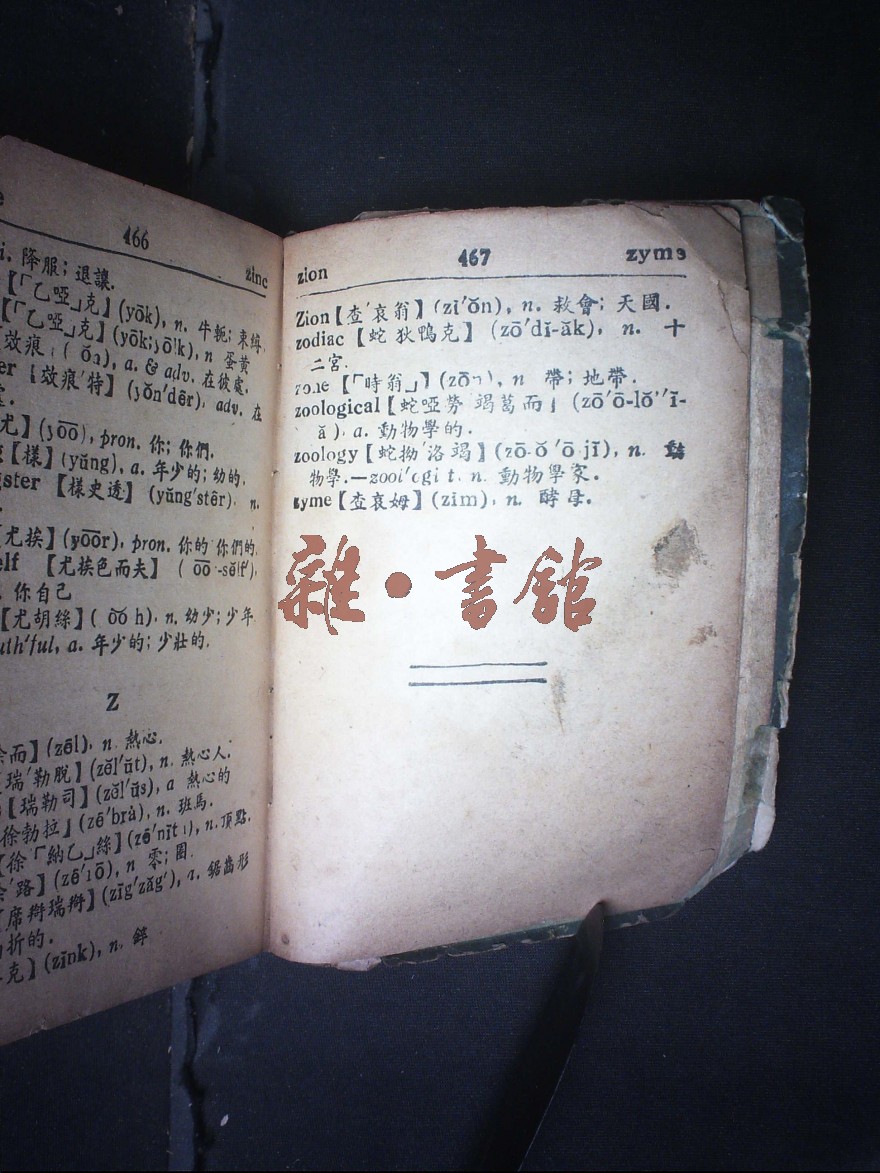 466
zinc
降服；退讓.
【「乙啞」克】(yōk), n. 牛軛；束縛.
【「乙啞」克】(yōk; yŏlk), n 蛋黃
效痕 a. & adv. 在彼處.
【效痕′特】(yŏn′dẽr), adv. 在
尤】(yōō), pron. 你；你們.
【樣】(yŭng), a. 年少的；幼的.
gster 【樣史透】 (yŭng′stẽr). n.
尤挨】(yōōr), pron. 你的 你們的
elf 【尤挨色而夫】 ( ōō -sĕlf′),
你自己
【尤胡絲】( ōō h), n. 幼少；少年
uth′ful, a. 年少的；少壯的.
Z
而】(zēl), n. 熱心.
瑞′勒脫】(zĕl′ŭt), n. 熱心人.
【瑞勒司】(zĕl′ŭs), a 熱心的
徐勃拉」(zē′brȧ), n. 班馬.
徐「納乙」絲】 n. 頂點.
′路】 n 零；圈
席辩瑞辩】(zĭg′zăg′), 鋸齒形
折的.
克】(zĭnk), n. 鋅
zion 467 zyme
Zion【查′哀翁】(zī′ŏn), n. 救會；天國.
zodiac 【蛇 狄鴨克】 (zō′dĭ-ăk), n. 十
二宮.
【「時翁」】(zōn), n 帶；地帶.
zoological【蛇啞勞 竭葛而】 (zō′ō-lŏ″ĭ-
ă ). a. 動物學的.
zoology【蛇拗′洛竭】(zō-ŏ′ō-jĭ), n. 動
物學.—zool′ogi t. n. 動物學家.
zyme【查哀姆】(zīm), n. 酵母.
雜·書館